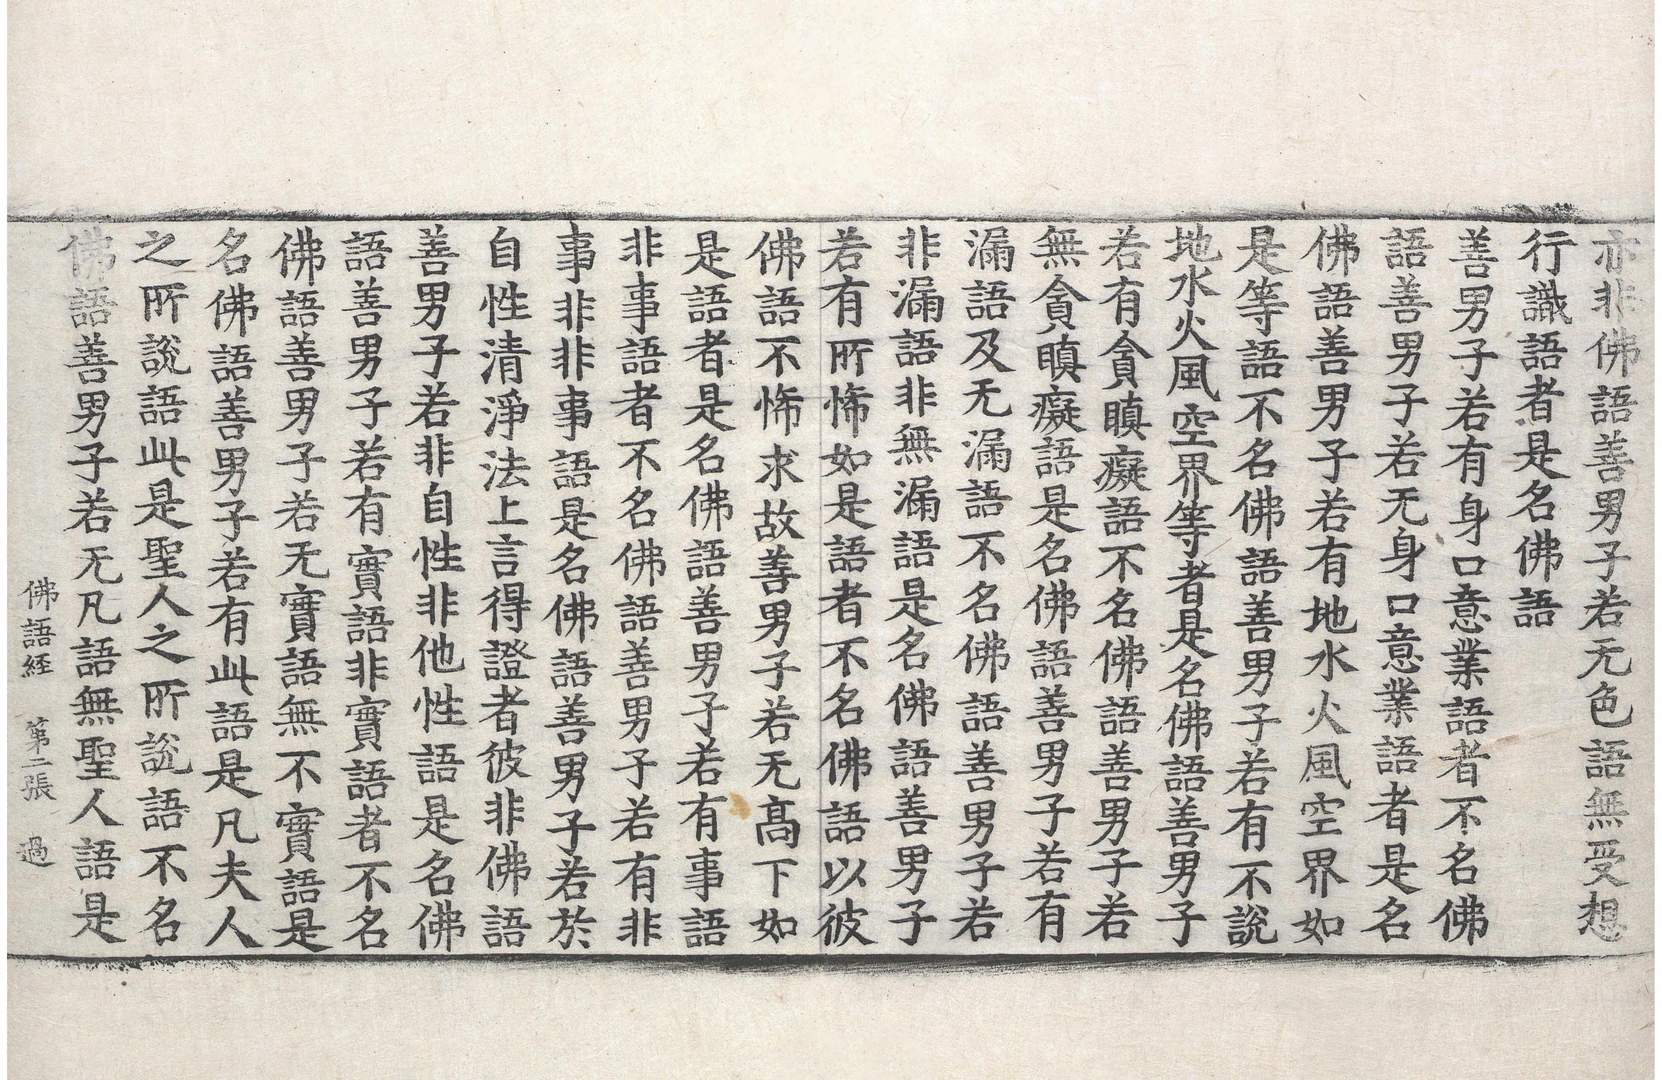 亦非佛語善男子若无色語無受想
行識語者是名佛語
善男子若有身口意業語者不名佛
語善男子若无身口意業語者是名
佛語善男子若有地水火風空界如
是等語不名佛語善男子若有不說
地水火風空界等者是名佛語善男子
若有貪瞋癡語不名佛語善男子若
無貪瞋癡語是名佛語善男子若有
漏語及无漏語不名佛語善男子若
非漏語非無漏語是名佛語善男子
若有所悕如是語者不名佛語以彼
佛語不悕求故善男子若无高下如
是語者是名佛語善男子若有事語
非事語者不名佛語善男子若有非
事非非事語是名佛語善男子若於
自性清淨法上言得證者彼非佛語
善男子若非自性非他性語是名佛
語善男子若有實語非實語者不名
佛語善男子若无實語無不實語是
名佛語善男子若有此語是凡夫人
之所說語此是聖人之所說語不名
佛語善男子若无凡語無聖人語是
佛語経 第二張 過